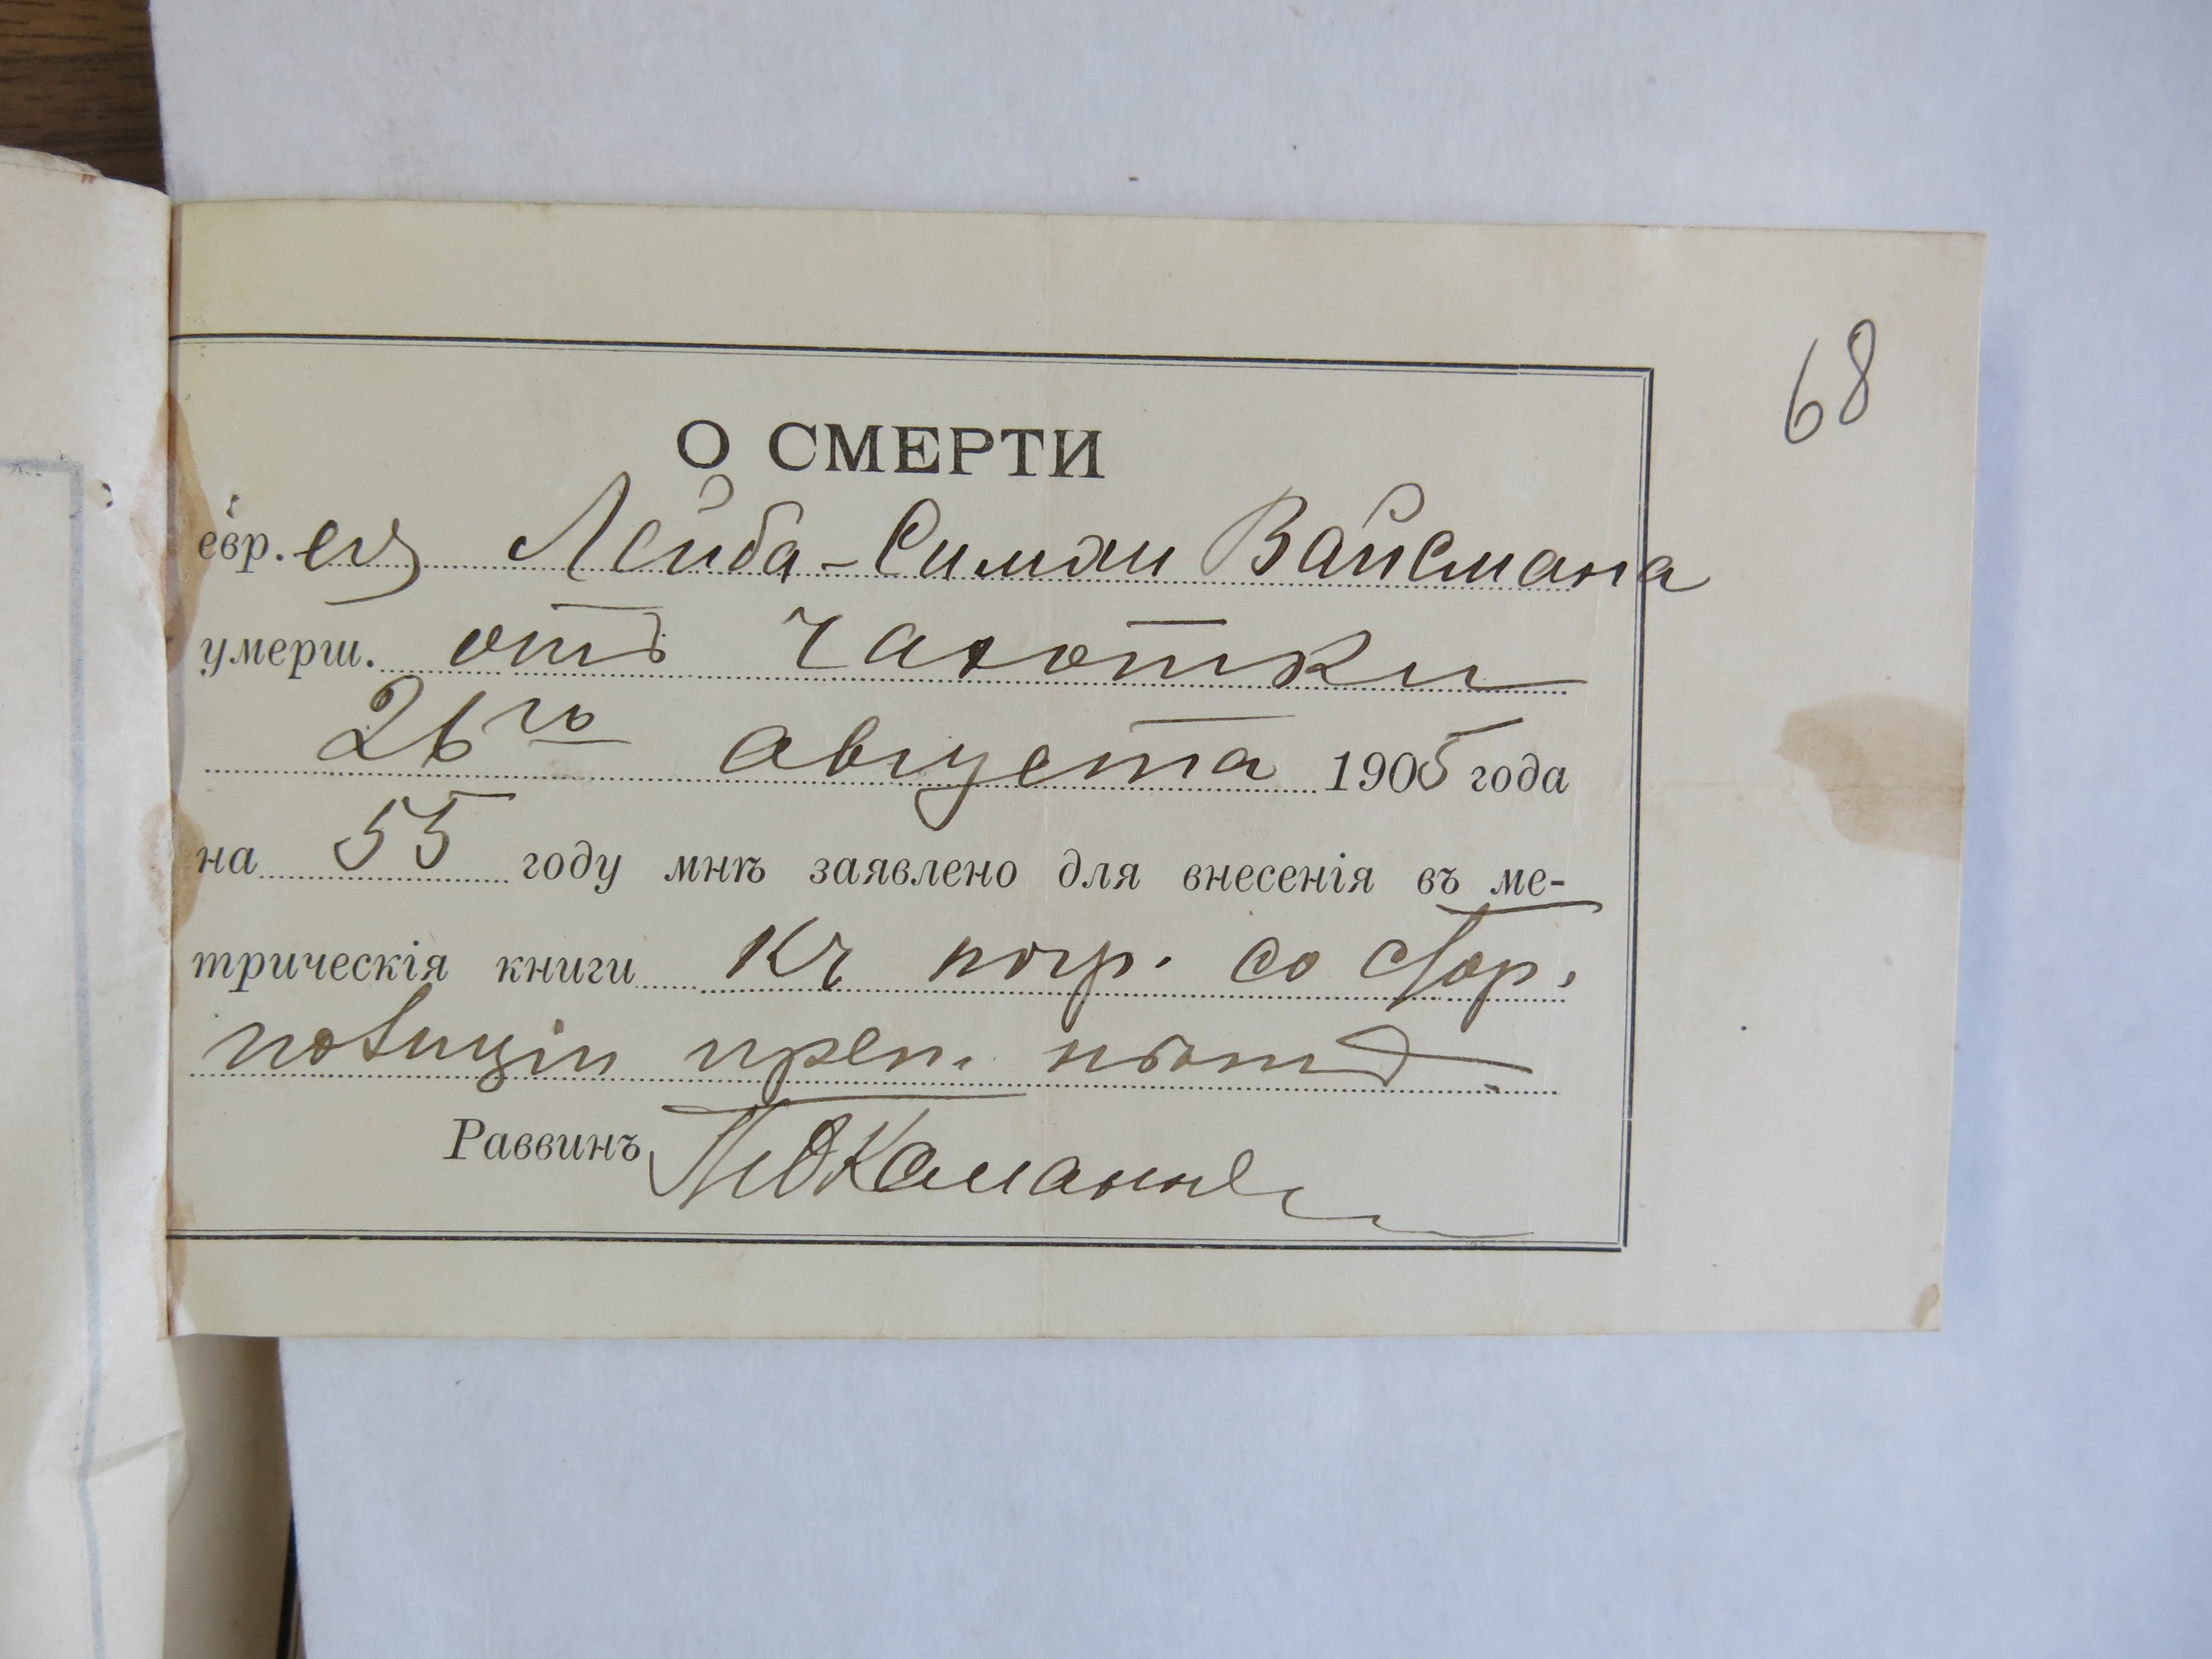 68
О СМЕРТИ
евр.ея Лейба-Симхи Вайсмана
умерш. отъ чахотки
26го августа 1905 года
на 55 году мнѣ заявлено для внесенія въ ме-
трическія книги Къ погр. со стор.
полиціи преп. нѣтъ
Раввинъ